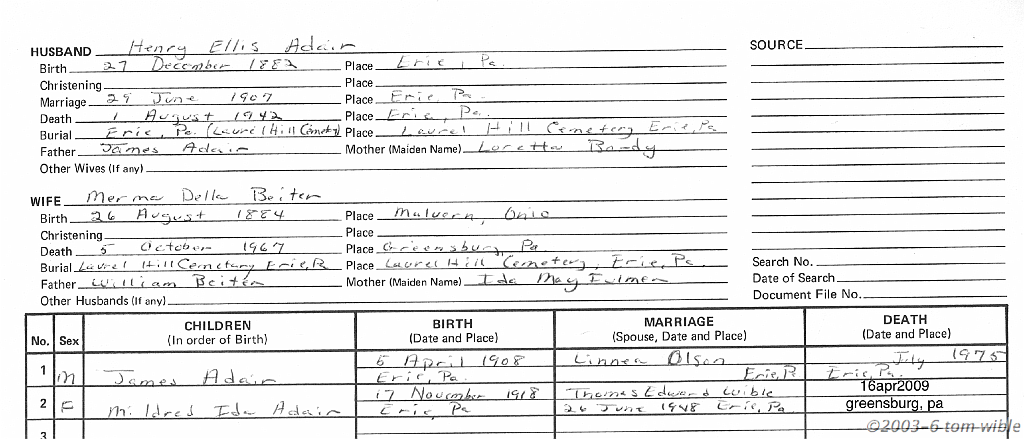 HUSBAND Henry Ellis Adair SOURCE
Birth 27 December 1882 Place Erie, Pa.
Christening Place
Marriage 29 June 1907 Place Erie, Pa.
Death 1 August 1942 Place Erie, Pa.
Burial Erie, Pa. (Laurel Hill Cemetery) Place Laurel Hill Cemetery Erie, Pa
Father James Adair Mother (Maiden Name) Loretta
Other Wives (If any)
WIFE Merma Della Beiter
Birth 26 August 1884 Place Malvern, Ohio
Christening Place
Death 5 October 1967 Place Greensburg, Pa.
Burial Laurel Hill Cemetery Erie, Pa Place Laurel Hill Cemetery, Erie, Pa. Search No.
Father William Beiter Mother (Maiden Name) Ida May Date of Search
Other Husbands (If any) Document File No.
No. Sex CHILDREN (In order of Birth) BIRTH (Date and Place) MARRIAGE (Spouse, Date and Place) DEATH (Date and Place)
5 April 1908 Linnea Olson July 1975
1 M James Adair Erie, Pa. Erie, Pa Erie, Pa.
17 November 1918 Thomas Edward Wible 16apr2009
2 F Mildred Ida Adair Erie, Pa 26 June 1948 Erie, Pa greensburg, pa
3
©2003-6 tom wible